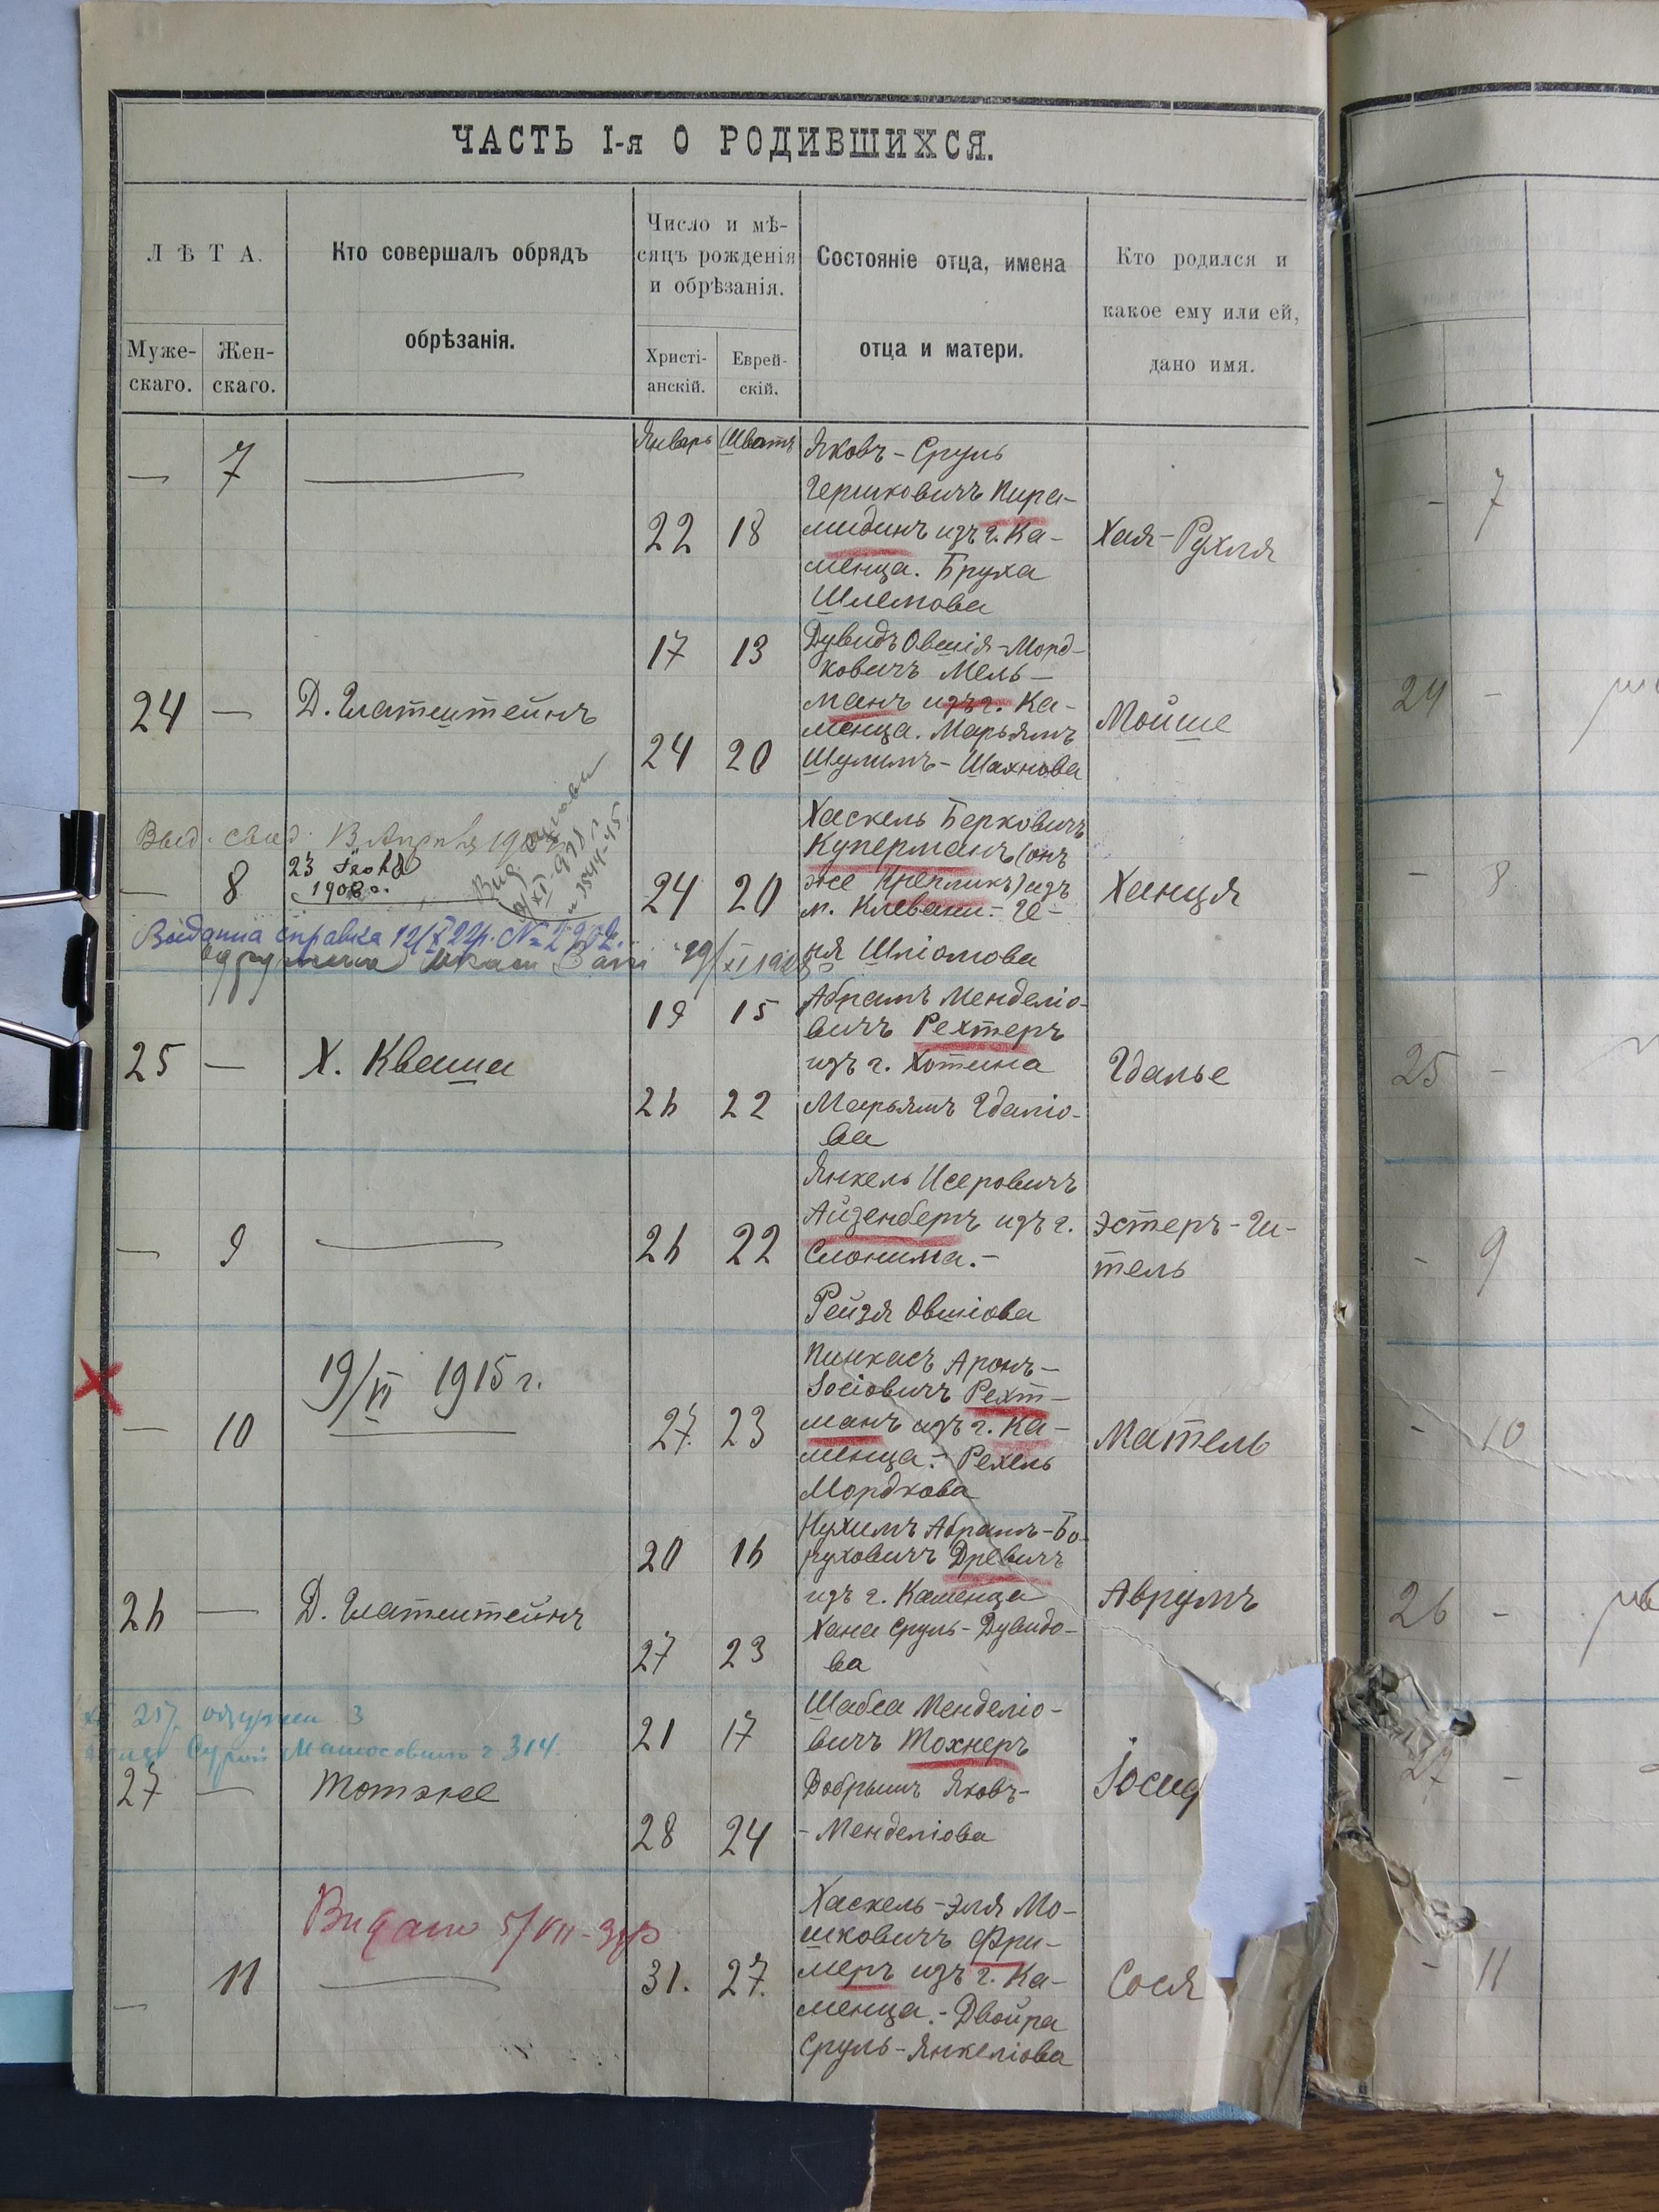 ЧАСТЬ I-я О РОДИВШИХСЯ.
ЛѢТА.
Муже-
скаго.
Жен-
скаго.
Кто совершалъ обрядъ
обрѣзанія.
Число и мѣ-
сяцъ рожденія
и обрѣзанія.
Христі-
анскій.
Еврей-
скій.
Состояніе отца, имена
отца и матери.
Кто родился и
какое ему или ей,
дано имя.
— 7 —
Январь Шватъ
22 18
Яковъ-Сруль
Гершковичъ Пира-
мидинъ изъ г. Ка-
менца. Бруха
Шлемова
Хая-Рухля
24 —
Д. Глатштейнъ
17 13
24 20
Дувидъ Овшія-Морд-
ковичъ Мель-
манъ изъ г. Ка-
менца. Марьямъ
Шулимъ-Шахнова
Мойше
Выд. свид. В Апрѣля
23
1908 г.
— 8
Выдана справка 12/X 22р. №
24 20
Хаскель Берковичъ
Куперманъ (онъ
же Крепликъ) изъ
м. Клевани.- Ге-
ня Шліомова
Ханця
25 —
Х. Кваша
19 15
26 22
Абрамъ Менделіо-
вичъ Рехтеръ
изъ г. Хотина
Марьямъ Гдаліо-
ва
Гдалье
— 9 —
26 22
Янкель Исеровичъ
Айзенбергъ изъ г.
Слонима.-
Рейзя Овшіова
Эстеръ-Ги-
тель
— 10
19/VI 1915 г.
27. 23
Пинкасъ Аронъ-
Іосіовичъ Рехт-
манъ изъ г. Ка-
менца.- Рехель
Мордкова
Матель
26 —
Д. Глатштейнъ
20 16
27 23
Нухимъ Абрамъ-Бо-
руховичъ Древичъ
изъ г. Каменца
Хана Сруль-Дувидо-
ва
Аврумъ
314.
27 —
Тотже
21 17
28 24
Шабса Менделіо-
вичъ Тохнеръ
Добрышъ Яковъ-
-Менделіова
Іосиф
Видано 5/VII-
— 11 —
31. 27.
Хаскель-Эля Мо-
шковичъ Фри-
меръ изъ г. Ка-
менца.- Двойра
Сруль-Янкеліова
Сося
- 7
24 -
- 8
25 -
- 9
- 10
26 -
27 -
- 11